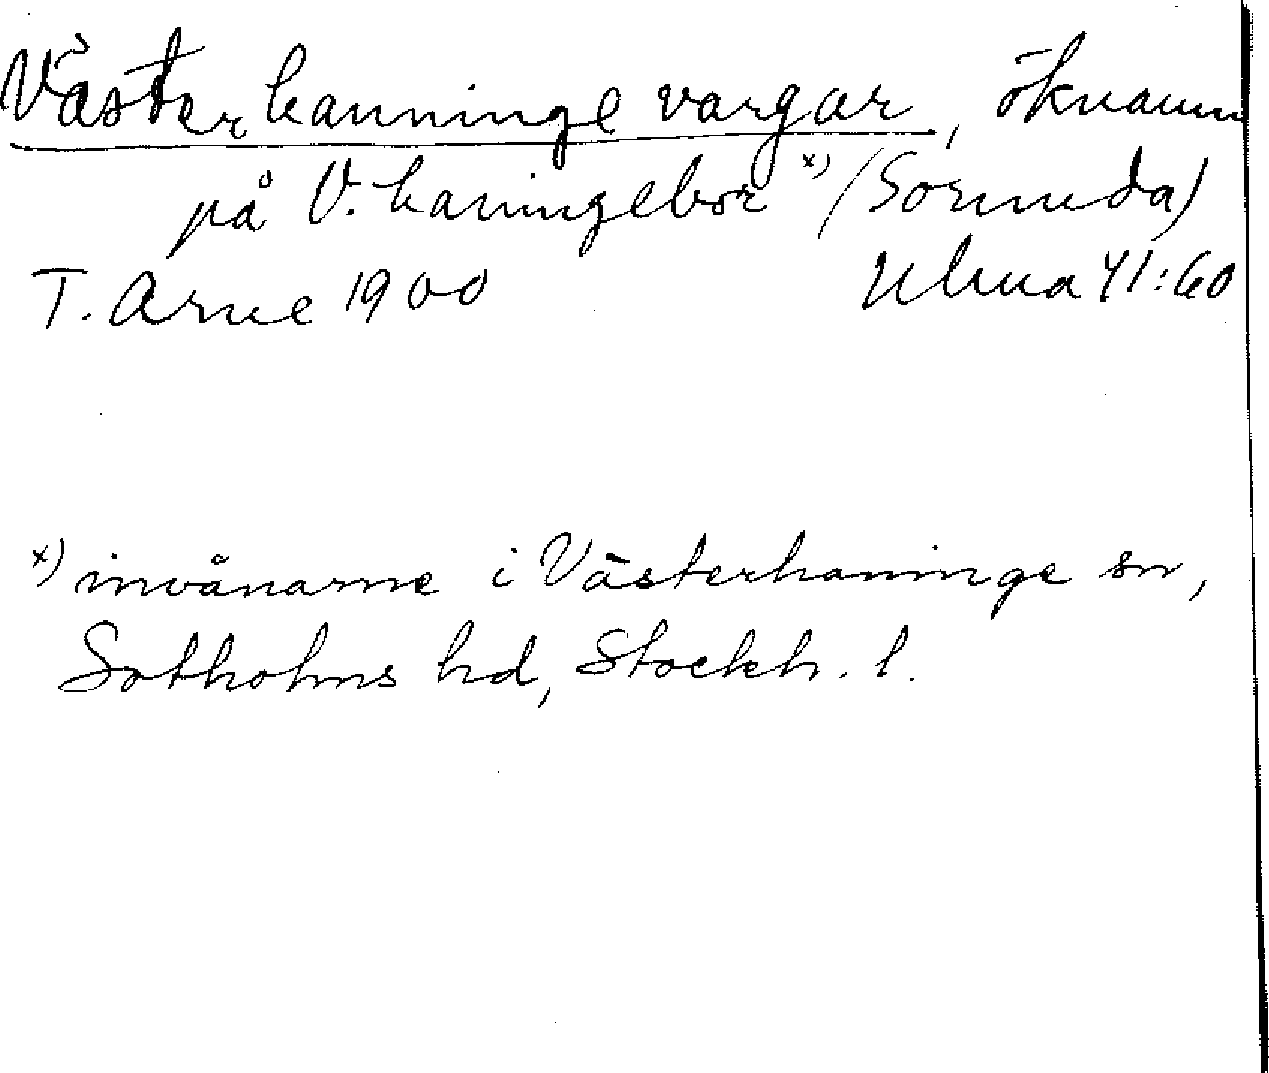 Västerhanninge vargar, öknamn
på V. haningebor x) (Sorunda)
T. Arne 1900 Ulma 41:60
x) invånarne i Västerhaninge sn,
Sotholms hd, Stockh. l.